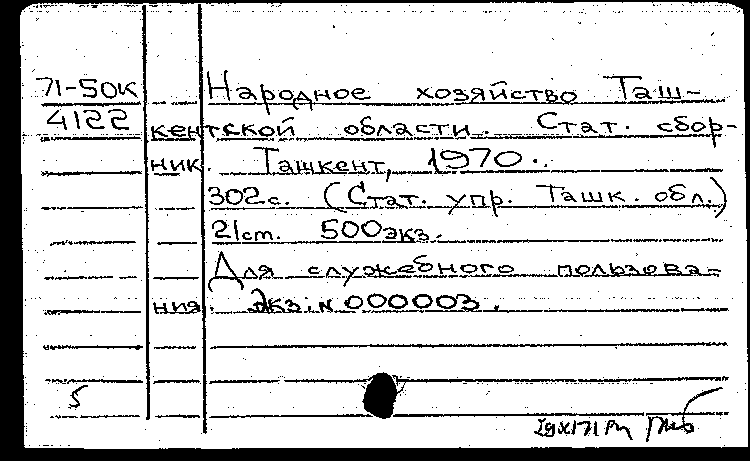 71-50к Народное хозяйство Таш-
4122 кентской области. Стат. сбор-
ник. Ташкент, 1970.
302с. (Стат. упр. Ташк. обл.)
21см. 500экз.
Для служебного пользова-
ния. Экз. N 000003.
5